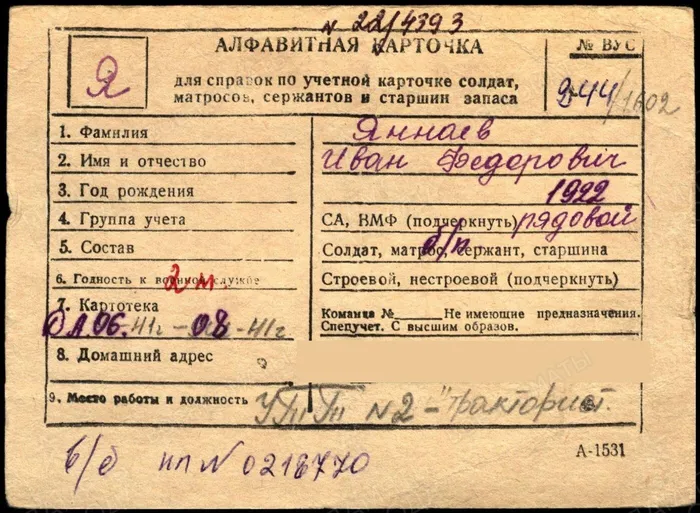 N 22/4393
АЛФАВИТНАЯ КАРТОЧКА
№ ВУС
Я
для справок по учетной карточке солдат,
матросов, сержантов и старшин запаса
944/1602
1. Фамилия
Яннаев
2. Имя и отчество
Иван Федорович
3. Год рождения
1922
4. Группа учета
СА, ВМФ (подчеркнуть) рядовой
5. Состав
Солдат, матрос, сержант, старшина
б/п.
6. Годность к военной службе
2 м.
Строевой, нестроевой (подчеркнуть)
7. Картотека
06.41г-08-41г
Команка №______ Не имеющие предназначения.
Спецучет. С высшим образов.
8. Домашний адрес
9. Место работы и должность
N2 - "тракторист.
б/б нп N 0216770
А-1531